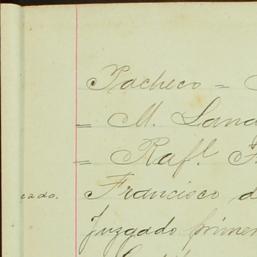 Pacheco =
= M. Land
= Rafl.
zado. Francisco d
Juzgado primer